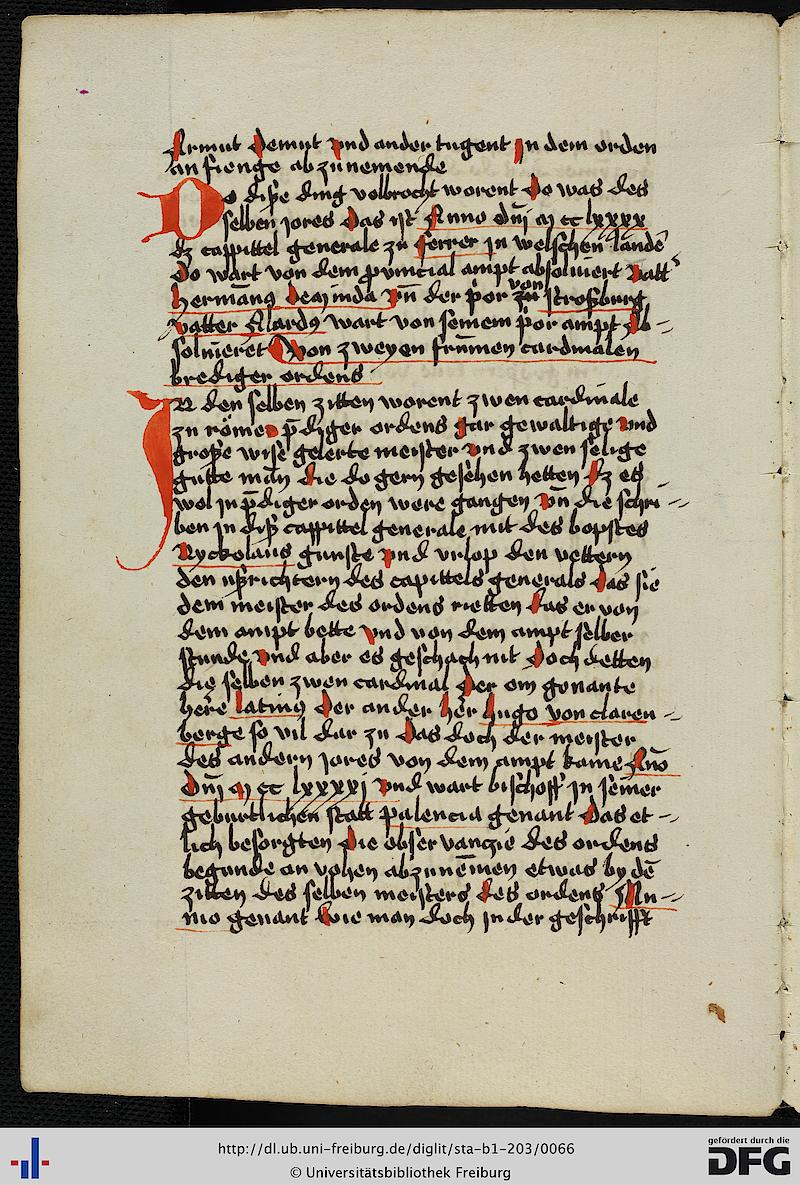 Armut Demut vnd ander tugent jn dem orden
an fienge ab zu nemende
Do diße ding volbrocht worent Do was des
selben jores Das ist Anno dnī m cc lxxxx
dz cappittel generale zu ferrer jn welschen landē
Do wart von dem prouincial ampt absoluiert vatt'
hermanus De minda vn̄ der p̄or von stroßburg
vatter Alardus wart von seinem p̄or ampt ab=
soluieret Von zweyen frumen cardinalen
brediger ordens
IN den selben zitten worent zwen cardinale
zu röme p̄diger ordens gar gewaltige vnd
große wise gelerte meister vnd zwen selige
gutte man die do gern gesehen hetten dz es
wol jn p̄diger orden were gangen vn̄ die schri=
ben jn diß cappittel generale mit des bopstes
Nyckolaus gunste vnd vrlop den vettern
den ußrichtern des capittels generals das sie
dem meister des ordens rietten das er von
dem ampt bette vnd von dem ampt selber
stunde vnd aber es geschach nit Doch detten
die selben zwen cardinal Der ein gonante
here latinus Der ander her hugo von claren=
berge so vil dar zu Das doch der meister
des andern jores von dem ampt kame Ano
dnī m cc lxxxxj vnd wart bischoff jn seiner
geburtlichen statt palencia genant Das et=
lich besorgten die obseruanczie des ordens
begunde an vohen abzunemen etwas by dē
zitten des selben meisters des ordens Mu=
nio genant wie man doch jn der geschrifft
http://dl.ub.uni-freiburg.de/diglit/sta-b1-203/0066
© Universitätsbibliothek Freiburg
gefördert durch die
DFG